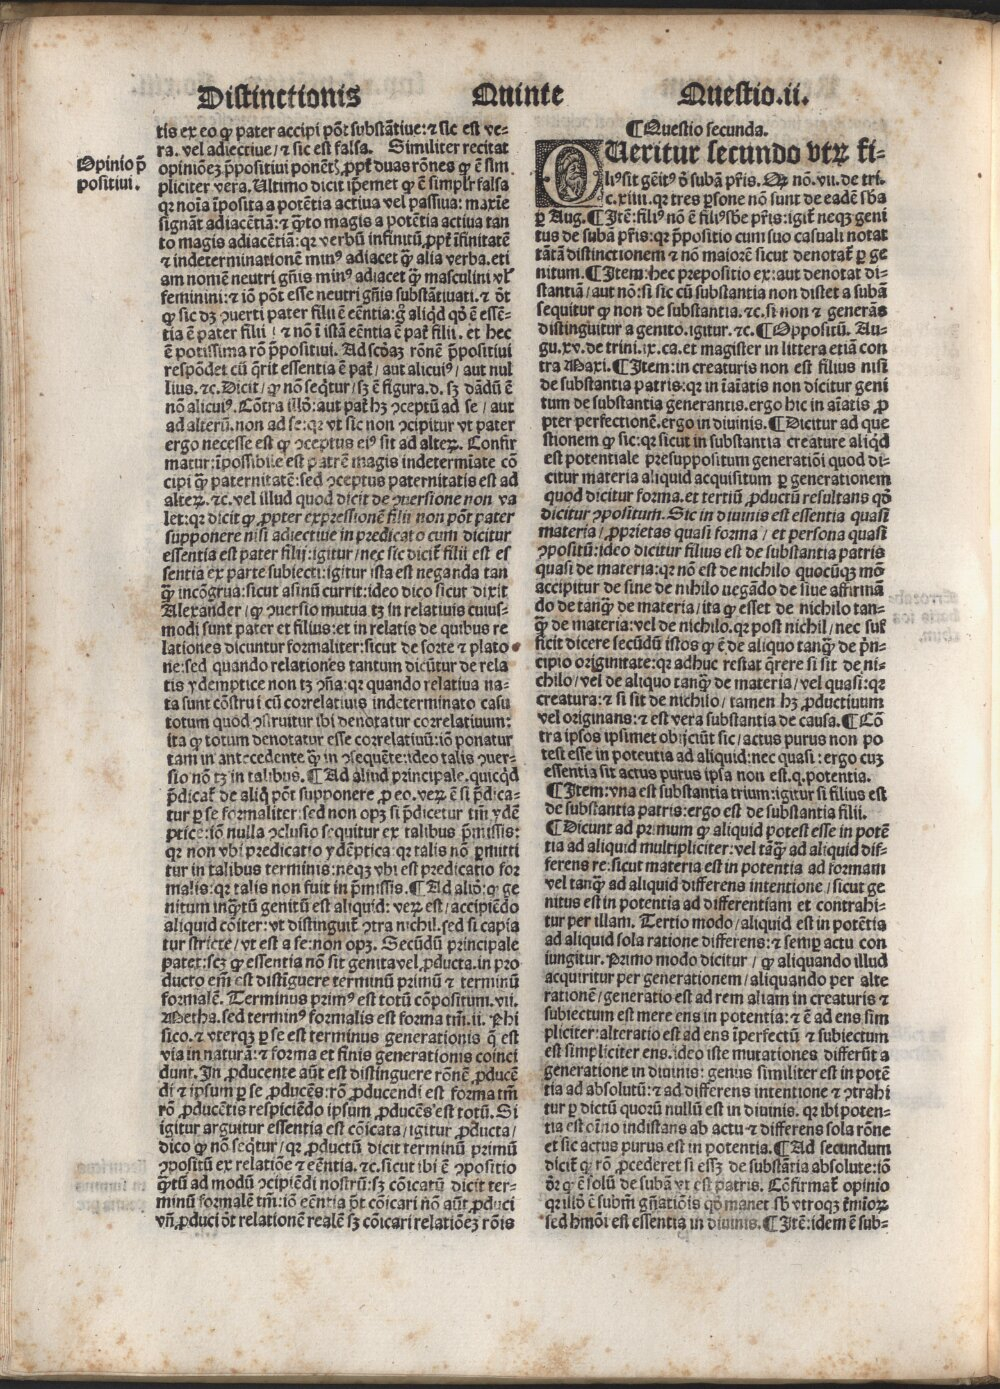 Distinctionis Quinte Questio.ii.
Opinio p̄
positiui.
tis ex eo ꝙ pater accipi põt substãtiue:⁊ sic est ve-
ra. vel adiectiue/⁊ sic est falsa. Similiter recitat
pliciter vera. Ultimo dicit ip̃emet ꝙ ē simplr̃ falsa
qr noĩa ĩposita a potẽtia actiua vel passiua: maxie
signãt adiacẽtiã:⁊ q̃to magis a potẽtia actiua tan
to magis adiacẽtiã:qr verbũ infinitũ ꝓpt̃ ĩfinitatẽ
⁊ indeterminationẽ minꝰ adiacet q̃ʒ alia verba.eti
am nomẽ neutri gñis minꝰ adiacet q̃ʒ masculini vl̃
feminini:⁊ iõ põt esse neutri gñis substãtiuati.⁊ õʒt
tia ē pater filii/⁊ nõ ĩ istã eẽntia ē pat̃ filii. et hec
ē potissima rõ p̃positiui. Ad scõaʒ rõnẽ p̃positiui
respõdet cũ q̃rit essentia ē pat̃/aut alicuiꝰ/aut nul
lius.⁊c.Dicit/ꝙ nõ seq̃tur/sʒ ē figura.d.sʒ dãdũ ē
nõ alicuiꝰ.Cõtra illõ:aut pat̃ hʒ ↄceptũ ad se/aut
ad alterũ.non ad se:qr vt sic non ↄcipitur vt pater
ergo necesse est ꝙ ↄceptus eiꝰ sit ad alteꝝ. Confir
matur:ĩpossibile est patrẽ magis indetermiate cõ
cipi q̃ʒ paternitatẽ:sed ↄceptus paternitatis est ad
alteꝝ.⁊c.vel illud quod dicit de ↄuersione non va
let:qr dicit ꝙ ꝓpter expressionẽ filii non põt pater
supponere nisi adiectiue in predicato cum dicitur
essentia est pater filii:igitur/nec sic dicit̃ filii est es
sentia ex parte subiecti:igitur ista est neganda tan
q̃ʒ incõgrua:sicut asinũ currit:ideo dico sicut dixit
Alexander/ꝙ ↄuersio mutua tʒ in relatiuis cuius-
modi sunt pater et filius:et in relatis de quibus re
lationes dicuntur formaliter:sicut de sorte ⁊ plato
ne:sed quando relationes tantum dicũtur de rela
tis ydemptice non tʒ ↄña:qr quando relatiua na-
ta sunt cõstrui cũ correlatiuis indeterminato casu
totum quod ↄstruitur ibi denotatur correlatiuum:
ita ꝙ totum denotatur esse correlatiuũ:iõ ponatur
tam in antecedente q̃ʒ in ↄsequẽte:ideo talis ↄuer-
sio nõ tʒ in talibus.¶Ad aliud principale.quicq̃d
p̃dicat̃ de aliq̃ põt supponere ꝓ eo.veꝝ ē si p̃dica-
tur ꝑ se formaliter:sed non opʒ si p̃dicetur tm̃ ydẽ
ptice:iõ nulla ↄclusio sequitur ex talibus p̃missis:
qr non vbi predicatio ydẽptica:qr talis nõ ꝑmitti
tur in talibus terminis:neqʒ vbi est predicatio for
malis:qr talis non fuit in p̃missis.¶Ad aliõ:ꝙ ge
nitum inq̃ʒtũ genitũ est aliquid: veꝝ est/accipiẽdo
aliquid cõiter:vt distinguit̃ ↄtra nichil.sed si capia
tur stricte/vt est a se:non opʒ. Secũdũ principale
patet:scʒ ꝙ essentia nõ sit genita vel ꝓducta.in pro
ducto em̃ est distĩguere terminũ primũ ⁊ terminũ
formalẽ. Terminus primꝰ est totũ cõpositum.vii.
Metha.sed terminꝰ formalis est forma tm̃.ii.Phi
sico.⁊ vterqʒ ꝑ se est terminus generationis q̃ est
via in naturã:⁊ forma et finis generationis coinci
dunt.In ꝓducente aũt est distinguere rõnẽ ꝓducẽ
di ⁊ ipsum ꝑ se ꝓducẽs:rõ ꝓducendi est forma tm̃
rõ ꝓducẽtis respiciẽdo ipsum ꝓducẽs est totũ. Si
igitur arguitur essentia est cõicata/igitur ꝓducta/
dico ꝙ nõ seq̃tur/qr ꝓductũ dicit terminũ primũ
ↄpositũ ex relatiõe ⁊ eẽntia.⁊c.sicut ibi ē ↄpositio
q̃ʒtũ ad modũ ↄcipiẽdi nostrũ:sʒ cõicatũ dicit ter-
minũ formalẽ tm̃:iõ eẽntia p̃t cõicari ñõ aũt ꝓduci
vñ ꝓduci õʒt relationẽ realẽ sʒ cõicari relatiõeʒ rõis
¶Questio secunda.
QUeritur secundo vtꝝ fi-
liꝰ sit geĩtꝰ õ subã pr̃is. Qʒ nõ.vii.de tri.
c.xiii.qr tres ꝑsone nõ sunt de eadẽ sb̃a
ꝑ Aug.¶Itẽ:filiꝰ nõ ē filiꝰ sbe pr̃is:igit̃ neqʒ geni
tus de subã pr̃is:qr p̃positio cum suo casuali notat
tãtã distinctionem ⁊ nõ maiorẽ sicut denotat̃ ꝑ ge
nitum.¶Item:hec prepositio ex:aut denotat di-
stantiã/aut nõ:si sic cũ substantia non distet a subã
sequitur ꝙ non de substantia.⁊c.si non ⁊ generãs
distinguitur a genito.igitur.⁊c.¶Oppositũ. Au-
gu.xv.de trini.ix.ca.et magister in littera etiã con
tra Maxi.¶Item:in creaturis non est filius nisi
de substantia patris:qr in ĩaĩatis non dicitur geni
tum de substantia generantis.ergo hic in aĩatis ꝓ
pter perfectionẽ.ergo in diuinis.¶Dicitur ad que
stionem ꝙ sic:qr sicut in substantia creature aliq̃d
est potentiale presuppositum generatiõi quod di-
citur materia aliquid acquisitum ꝑ generationem
quod dicitur forma.et tertiũ ꝓductũ resultans qõ
dicitur ↄpositum. Sic in diuinis est essentia quasi
materia/ꝓprietas quasi forma/et persona quasi
ↄpositũ:ideo dicitur filius est de substantia patris
quasi de materia:qr nõ est de nichilo quocũqʒ mõ
accipitur de siue de nihilo negãdo de siue affirmã
do de tanq̃ʒ de materia/ita ꝙ esset de nichilo tan-
q̃ʒ de materia:vel de nichilo.qr post nichil/nec suf
ficit dicere secũdũ istos ꝙ ē de aliquo tanq̃ʒ de p̃n-
cipio originitate:qr adhuc restat q̃rere si sit de ni-
chilo/vel de aliquo tanq̃ʒ de materia/vel quasi:qr
creatura:⁊ si sit de nichilo/tamen hʒ ꝓductiuum
vel originans:⁊ est vera substantia de causa.¶Cõ
tra ipsos ipsimet obijciũt sic/actus purus non po
test esse in potentia ad aliquid:nec quasi:ergo cuʒ
essentia sit actus purus ipsa non est.q.potentia.
¶Item:vna est substantia trium:igitur si filius est
de substantia patris:ergo est de substantia filii.
¶Dicunt ad primum ꝙ aliquid potest esse in potẽ
tia ad aliquid multipliciter:vel tãq̃ʒ ad aliquid dif-
ferens re:sicut materia est in potentia ad formam
vel tanq̃ʒ ad aliquid differens intentione/sicut ge
nitus est in potentia ad differentiam et contrahi-
tur per illam. Tertio modo/aliquid est in potẽtia
ad aliquid sola ratione differens:⁊ semꝑ actu con
iungitur.Primo modo dicitur/ꝙ aliquando illud
acquiritur per generationem/aliquando per alte
rationẽ/generatio est ad rem aliam in creaturis ⁊
subiectum est mere ens in potentia:⁊ ē ad ens sim
pliciter:alteratio est ad ens ĩperfectũ ⁊ subiectum
est simpliciter ens.ideo iste mutationes differũt a
generatione in diuinis: genus similiter est in potẽ
tia ad absolutũ:⁊ ad differens intentione ⁊ ↄtrahi
tur ꝑ dictũ quorũ nullũ est in diuinis. qr ibi poten-
tia est oĩno indistans ab actu ⁊ differens sola rõne
et sic actus purus est in potentia.¶Ad secundum
dicit̃ q̃ rõ ꝓcederet si esseʒ de substãtia absolute:iõ
õr ꝙ ē solũ de subã vt est patris. Cõfirmat̃ opinio
qr illõ ē subm̃ gñatiõis qõ manet sb̃ vtroqʒ t̃mioꝝ
sed hmõi est essentia in diuinis.¶Itẽ:idem ē sub-